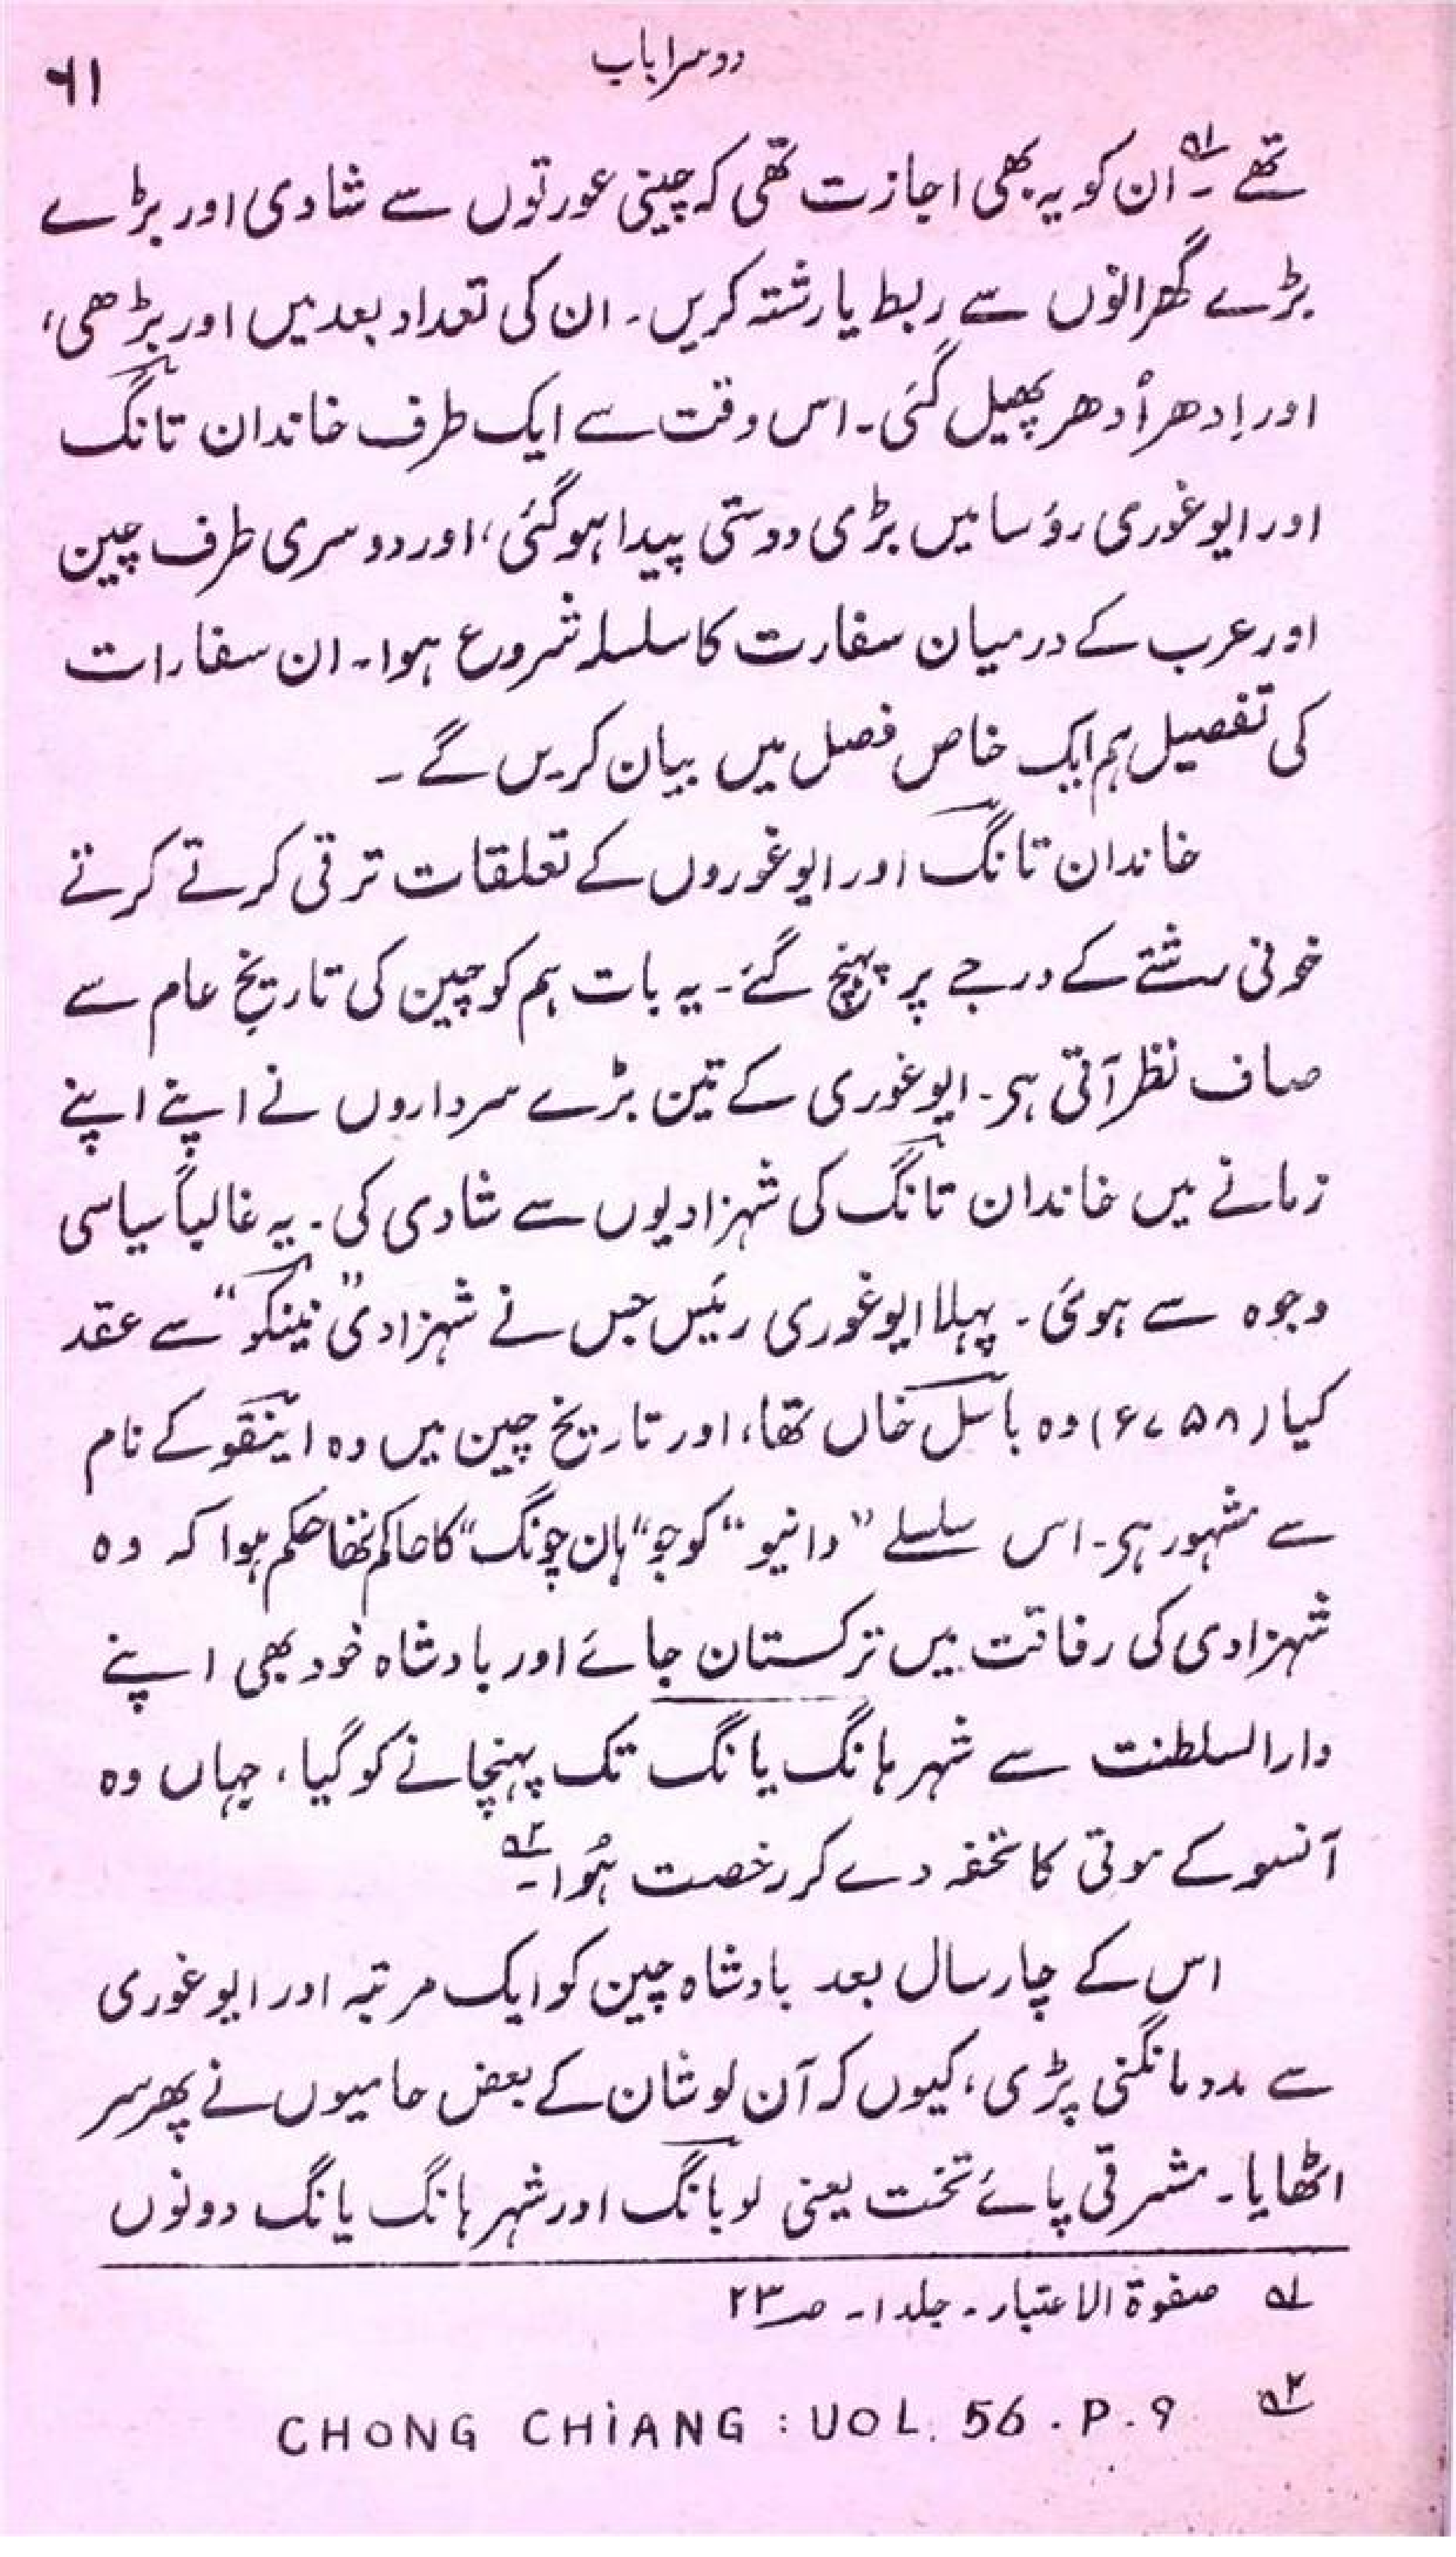 دوسرا باب
۶۱
تھے ۔ لہ ان کو یہ بھی اجازت تھی کہ چینی عورتوں سے شادی اور بڑے
بڑے گھرانوں سے ربط یا رشتہ کریں۔ ان کی تعداد بعد میں اور بڑھی،
اور اِدھر اُدھر پھیل گئی۔ اس وقت سے ایک طرف خاندان تانگ
اور ایوغوری رؤسا میں بڑی دوستی پیدا ہوگئی، اور دوسری طرف چین
اور عرب کے درمیان سفارت کا سلسلہ شروع ہوا۔ ان سفارات
کی تفصیل ہم ایک خاص فصل میں بیان کریں گے ۔
خاندان تانگ اور ایوغوروں کے تعلقات ترقی کرتے کرتے
خونی رشتے کے درجے پر پہنچ گئے۔ یہ بات ہم کو چین کی تاریخِ عام سے
صاف نظر آتی ہی۔ ایوغوری کے تین بڑے سرداروں نے اپنے اپنے
زمانے میں خاندان تانگ کی شہزادیوں سے شادی کی۔ یہ غالباً سیاسی
وجوہ سے ہوئی۔ پہلا ایوغوری رئیس جس نے شہزادی ”نینکو“ سے عقد
کیا (۷۵۸ء) وہ باسل خاں تھا، اور تاریخ چین میں وہ اینقو کے نام
سے مشہور ہی۔ اس سلسلے ”دانیو“ کو جو ”ہان چونگ“ کا حاکم تھا حکم ہوا کہ وہ
شہزادی کی رفاقت میں ترکستان جائے اور بادشاہ خود بھی اپنے
دارالسلطنت سے شہر ہانگ یانگ تک پہنچانے کو گیا، جہاں وہ
آنسو کے موتی کا تحفہ دے کر رخصت ہُوا۔ ۲ہ
اس کے چار سال بعد بادشاہ چین کو ایک مرتبہ اور ایوغوری
سے مدد مانگنی پڑی، کیوں کہ آن لوشان کے بعض حامیوں نے پھر سر
اٹھایا۔ مشرقی پائے تخت یعنی لویانگ اور شہر ہانگ یانگ دونوں
لہ صفوۃ الاعتبار۔ جلد ۱۔ صـ ۲۳
۲ہ CHONG CHiANG : UOL. 56 . P. 9